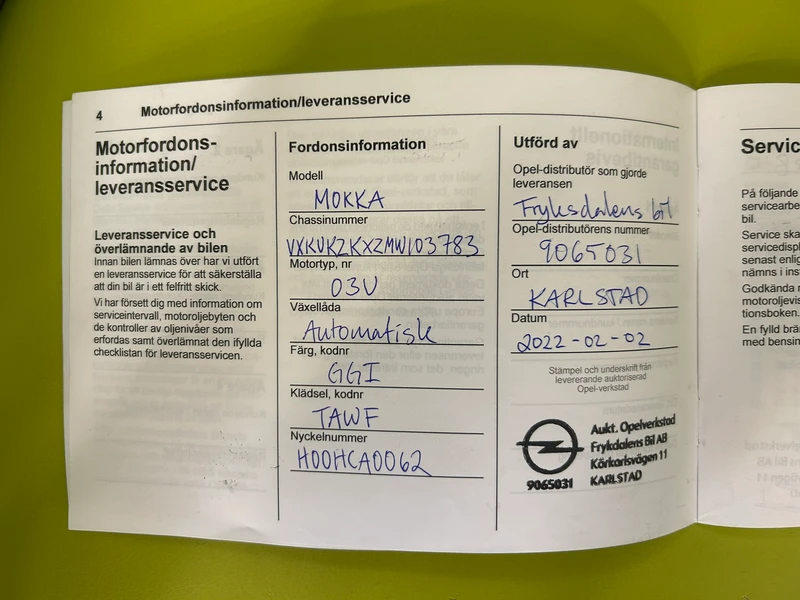 4 Motorfordonsinformation/leveransservice
Motorfordons-
information/
leveransservice
Leveransservice och
överlämnande av bilen
Innan bilen lämnas över har vi utfört
en leveransservice för att säkerställa
att din bil är i ett felfritt skick.
Vi har försett dig med information om
serviceintervall, motoroljebyten och
de kontroller av oljenivåer som
erfordas samt överlämnat den ifyllda
checklistan för leveransservicen.
Fordonsinformation
Modell
MOKKA
Chassinummer
VXKUKZKXZMW103783
Motortyp, nr
03U
Växellåda
Automatisk
Färg, kodnr
GGI
Klädsel, kodnr
TAWF
Nyckelnummer
H00HCA0062
Utförd av
Opel-distributör som gjorde
leveransen
Fryksdalens bil
Opel-distributörens nummer
9065031
Ort
KARLSTAD
Datum
2022-02-02
Stämpel och underskrift från
levererande auktoriserad
Opel-verkstad
Aukt. Opelverkstad
Frykdalens Bil AB
Körkarlsvägen 11
9065031 KARLSTAD
Servic
På följande
servicearbe
bil.
Service ska
servicedispl
senast enlig
nämns i ins
Godkända m
motoroljevis
tionsboken.
En fylld brä
med bensin